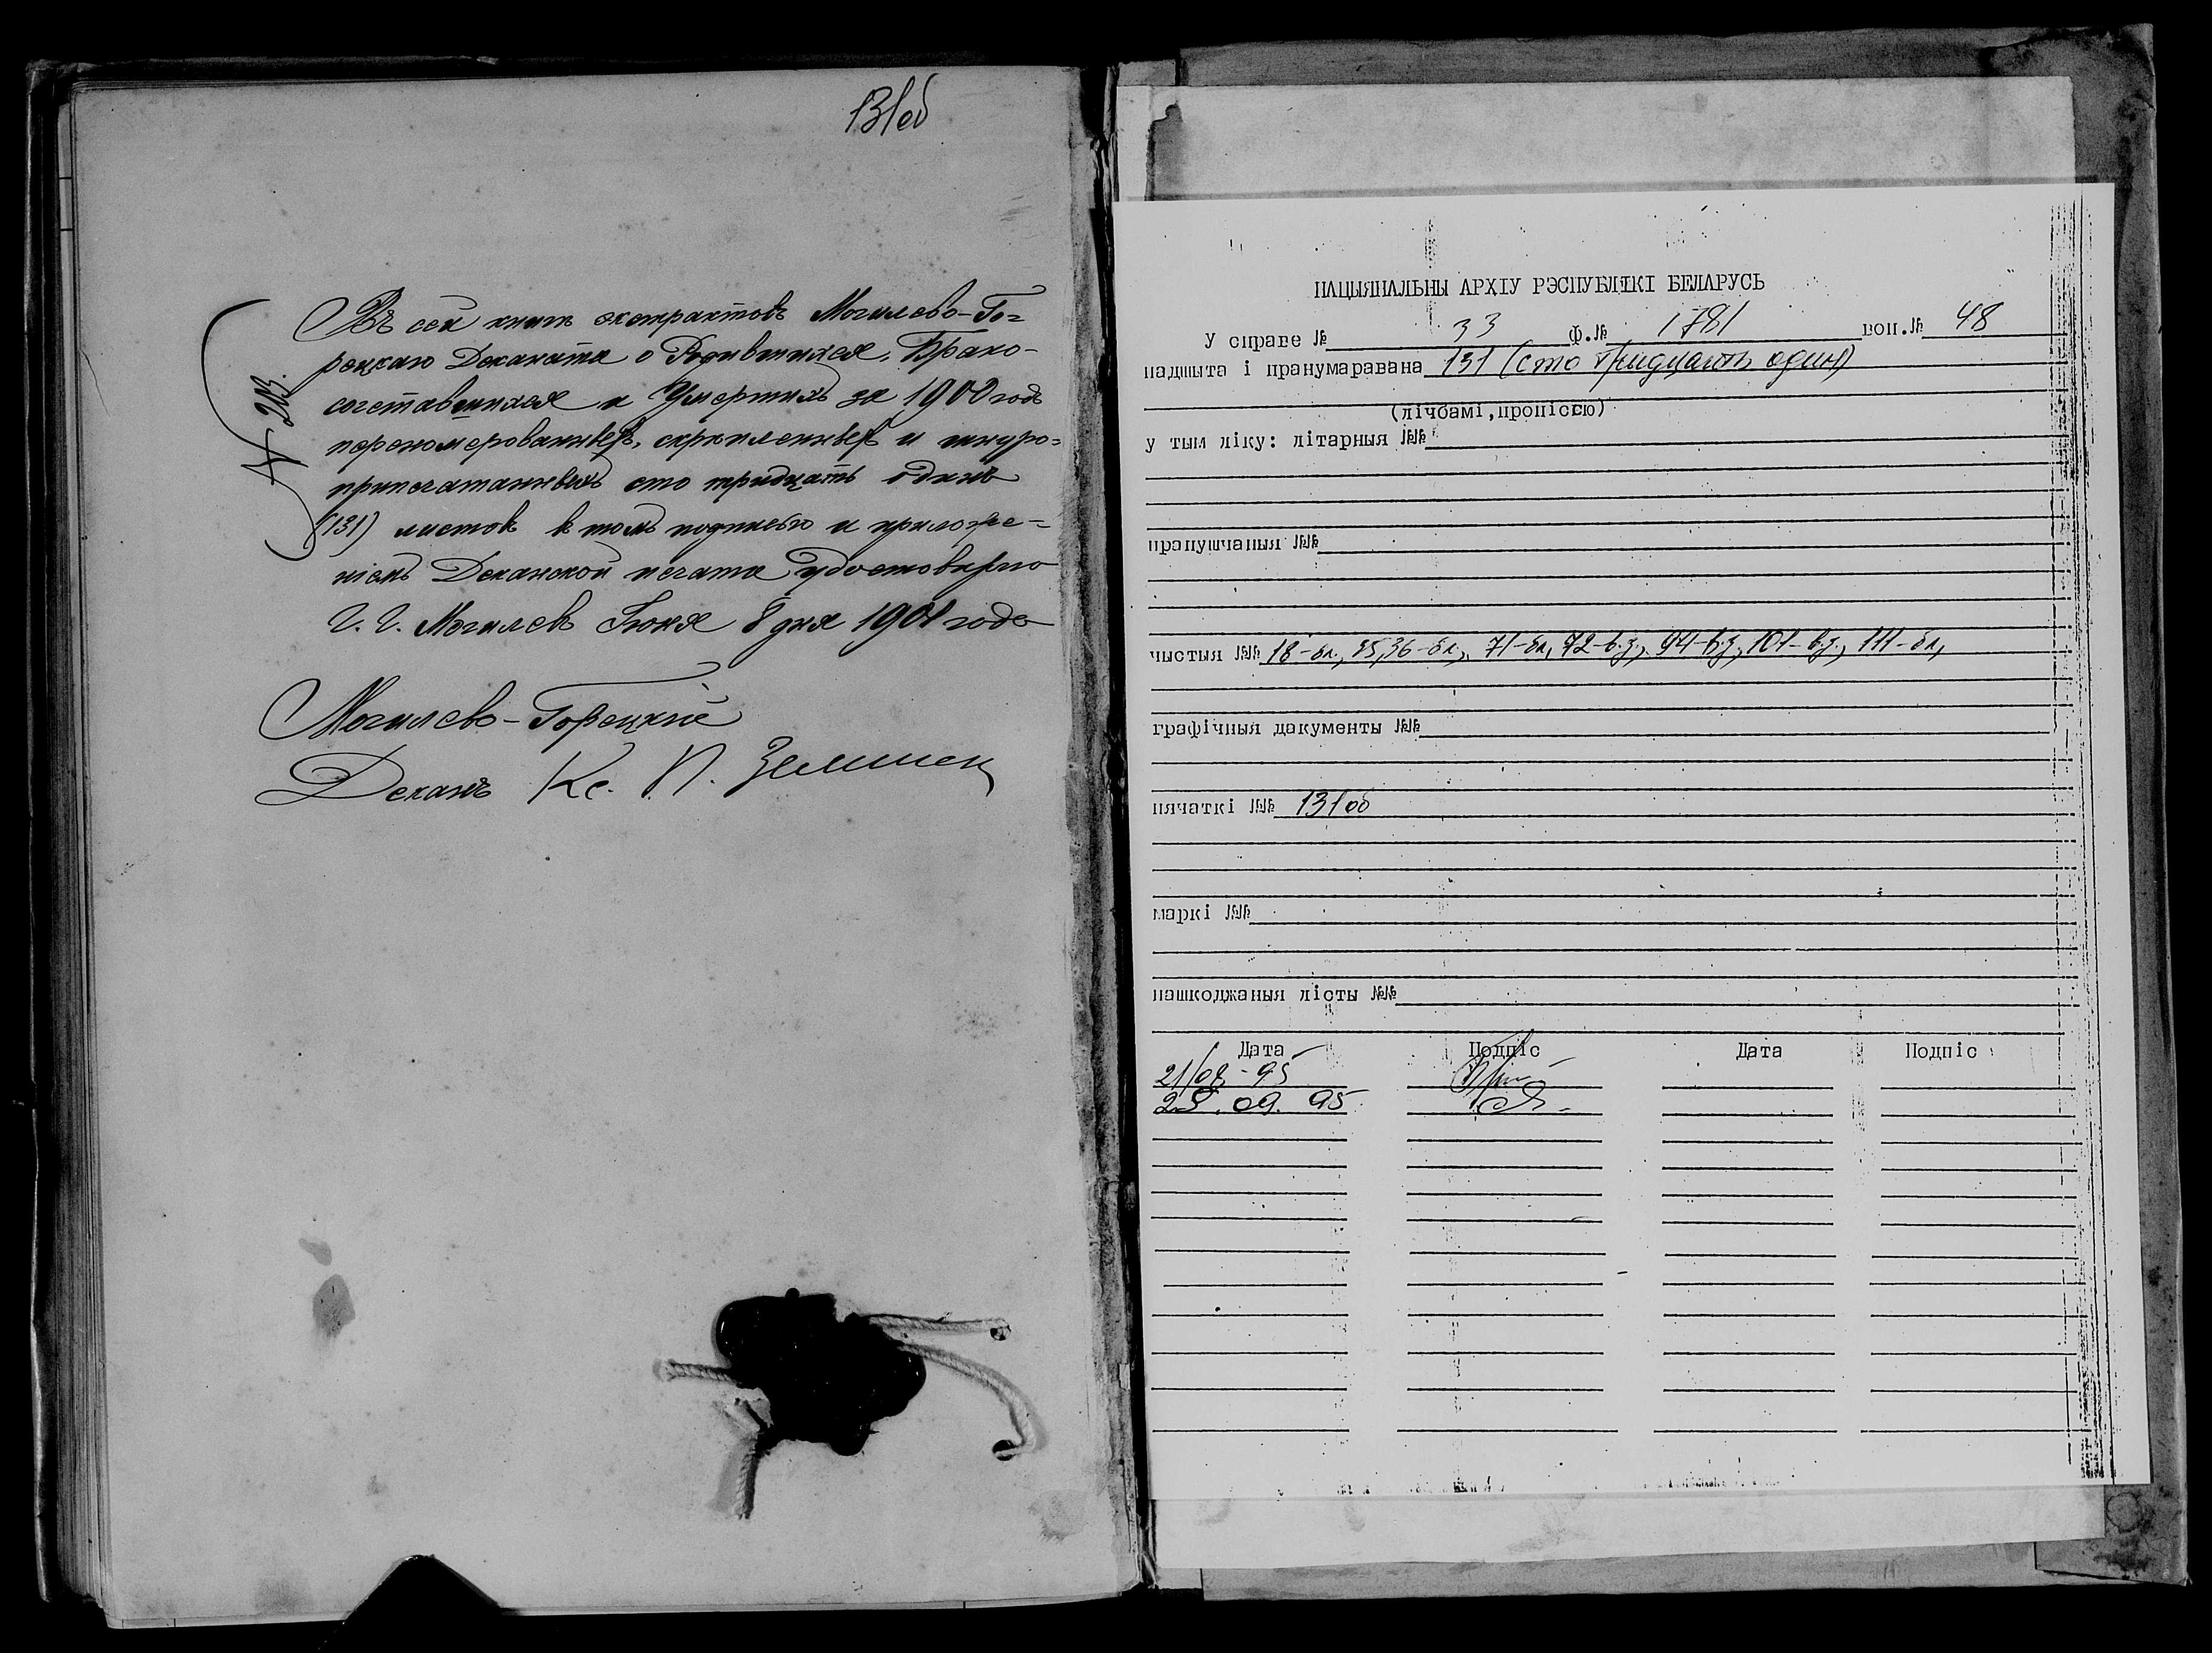 131об
№ 283.
Въ сей книгѣ экстрактовъ Могилево-Го-
рецкаго Деканата о Родившихся, Брако-
сочетавшихся и Умершихъ за 1900 годъ
перенумерованныхъ, скрѣпленныхъ и шнуро-
припечатанныхъ сто тридцать одинъ
(131) листовъ в томъ подписью и приложе-
ніемъ Деканской печати удостовѣряю
Г. Г. Могилевъ Іюня 8 дня 1901 года
Могилево-Горецкій
Деканъ Кс. П.
НАЦЫЯНАЛЬНЫ АРХІУ РЭСПУБЛІКІ БЕЛАРУСЬ
У справе № 33 Ф.№ 1781 воп.№ 48
падшыта і пранумаравана 131 (сто тридцать один)
(лічбамі, пропіссю)
у тым ліку: літарныя №№
прапушчаныя №№
чыстыя №№ 18-бл., 35,36-бл., 71-бл, 72-б.з., 94-б.з., 101-б.з., 111-бл,
графічныя дакументы №№
пячаткі №№ 131об
маркі №№
пашкоджаныя лісты №№
Дата Подпіс Дата Подпіс
21/08-95
25.09.95